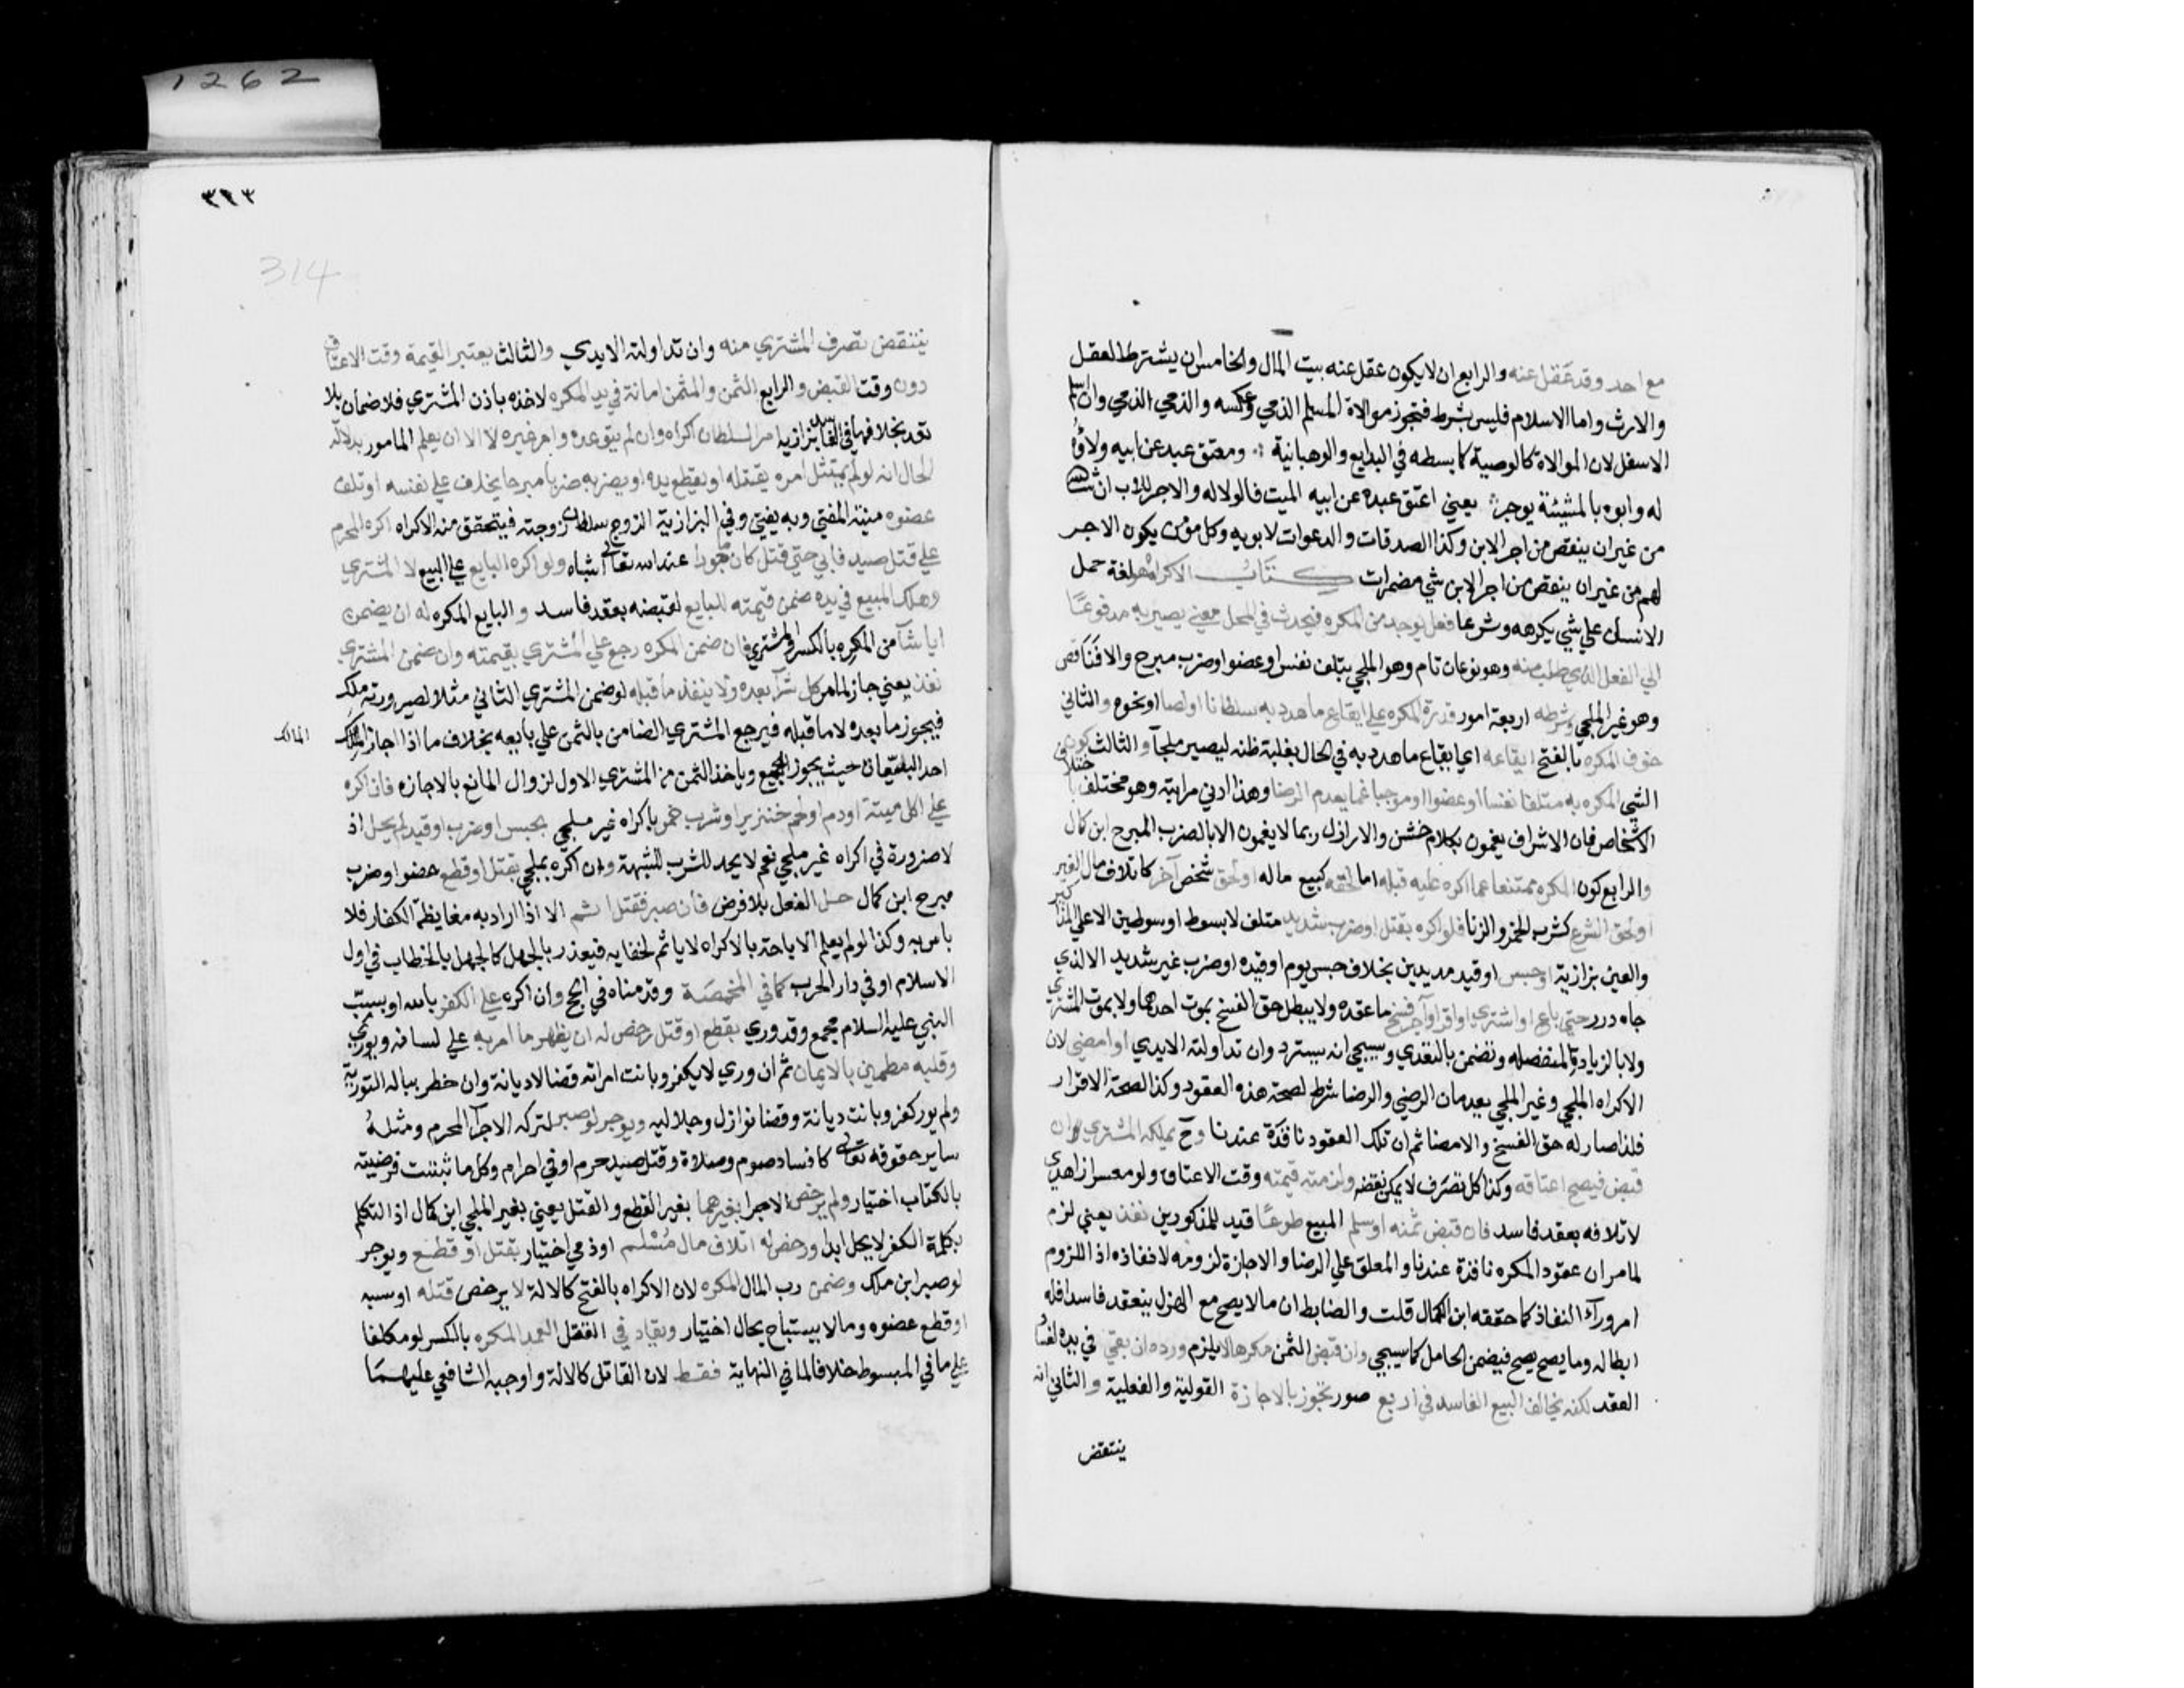 مع احد وقد عقل عنه والرابع ان لا يكون عقل عنه بيت المال والخامس ان يشترط العقل
والارث واما الاسلام فليس بشرط فتجوز موالاة المسلم الذمي وعكسه والذمي الذمي وان اسلم
الاسفل لان الموالاة كالوصية كما بسطه في البدايع والوهبانية ومعتق عبد عن ابيه ولاؤه
له وابوه بالمشيئة يوجر يعني اعتق عبده عن ابيه الميت فالولا له والاجر للاب ان شا الله
من غير ان ينقص من اجر الابن وكذا الصدقات والدعوات لابويه وكل مؤمن يكون الاجر
لهم من غير ان ينقص من اجر الابن شي مضمرات كتاب الاكراه هو لغة حمل
الانسان علي شي يكرهه وشرعا فعل يوجد من المكره فيحدث في المحل معني يصير به مدفوعا
الي الفعل الذي طلب منه وهو نوعان تام وهو الملجي بتلف نفس او عضو او ضرب مبرح والا فناقص
وهو غير الملجي وشرطه اربعة امور قدرة المكره علي ايقاع ما هدد به سلطانا او لصا او نحوه والثاني
خوف المكره بالفتح ايقاعه اي ايقاع ما هدد به في الحال بغلبة ظنه ليصير ملجا والثالث كون
الشي المكره به متلفا نفسا او عضوا او موجبا غما يعدم الرضا وهذا ادني مراتبه وهو مختلف باختلاف
الاشخاص فان الاشراف يغمون بكلام خشن والارازل ربما لا يغمون الا بالضرب المبرح ابن كمال
والرابع كون المكره ممتنعا عما اكره عليه قبله اما لحقه كبيع ماله او لحق شخص آخر كاتلاف مال الغير
او لحق الشرع كشرب الخمر والزنا فلو اكره بقتل او ضرب شديد متلف لا بسوط او سوطين الا علي المذاكير
والعين بزازية او حبس او قيد مديدين بخلاف حبس يوم او قيده او ضرب غير شديد الا لذي
جاه درر حتي باع او اشتري او اقر او آجر فسخ ما عقده ولا يبطل حق الفسخ بموت احدهما ولا بموت المشتري
ولا بالزيادة المنفصله وتضمن بالتعدي وسيجي انه يسترد وان تداولته الايدي او امضي لان
الاكراه الملجي وغير الملجي يعدمان الرضي والرضا شرط لصحة هذه العقود وكذا لصحة الاقرار
فلذا صار له حق الفسخ والامضا ثم ان تلك العقود نافذة عندنا وح يملكه المشتري ان
قبض فيصح اعتاقه وكذا كل تصرف لا يمكن نقضه ولزمته قيمته وقت الاعتاق ولو معسرا زاهدي
لاتلافه بعقد فاسد فان قبض ثمنه او سلم المبيع طوعا قيد للمذكورين نفذ يعني لزم
لما مر ان عقود المكره نافذة عندنا والمعلق علي الرضا والاجازة لزومه لا نفاذه اذ اللزوم
امر ورآ النفاذ كما حققه ابن الكمال قلت والضابط ان ما لا يصح مع الهزل ينعقد فاسدا فله
ابطاله وما يصح يصح فيضمن الحامل كما سيجي وان قبض الثمن مكرها لا يلزم ورده ان بقي في يده لفساد
العقد لكنه يخالف البيع الفاسد في اربع صور تجوز بالاجازة القولية والفعلية والثاني انه
ينتقض
٣١٣
314
ينتقض تصرف المشتري منه وان تداولته الايدي والثالث يعتبر القيمة وقت الاعتاق
دون وقت القبض والرابع الثمن والمثمن امانة في يد المكره لاخذه باذن المشتري فلا ضمان بلا
تعد بخلافهما في الفاسد بزازيه امر السلطان اكراه وان لم يتوعده وامر غيره لا الا ان يعلم المامور بدلالة
الحال انه لو لم يمتثل امره يقتله او يقطع يده او يضربه ضربا مبرحا يخاف علي نفسه او تلف
عضوه منية المفتي وبه يفتي وفي البزازية الزوج سلطان زوجته فيتحقق منه الاكراه اكره المحرم
علي قتل صيد فابي حتي قتل كان ماجورا عند الله تعالي اشباه ولو اكره البايع علي البيع لا المشتري
وهلك المبيع في يده ضمن قيمته للبايع لقبضه بعقد فاسد والبايع المكره له ان يضمن
ايا شآ من المكره بالكسر والمشتري فان ضمن المكره رجع علي المشتري بقيمته وان ضمن المشتري
نفذ يعني جاز لما مر كل شرآ بعده ولا ينفذ ما قبله لو ضمن المشتري الثاني مثلا لصيرورته ملكه
فيجوز ما بعده لا ما قبله فيرجع المشتري الضامن بالثمن علي بايعه بخلاف ما اذا اجاز المالك
المالك
احد البياعان حيث يجوز الجميع وياخذ الثمن من المشتري الاول لزوال المانع بالاجازه فان اكره
علي اكل ميتة او دم او لحم خنزير او شرب خمر باكراه غير ملجي بحبس او ضرب او قيد لم يحل اذ
لا ضرورة في اكراه غير ملجي نعم لا يحد للشرب للشبهة وان اكره بملجي بقتل او قطع عضو او ضرب
مبرح ابن كمال حل الفعل بلا فرض فان صبر فقتل اثم الا اذا اراد به مغايظة الكفار فلا
باس به وكذا لو لم يعلم الاباحة بالاكراه لا ياثم لخفايه فيعذر بالجهل كالجهل بالخطاب في اول
الاسلام او في دار الحرب كما في المخمصة وقدمناه في الحج وان اكره علي الكفر بالله او بسب
النبي عليه السلام مجمع وقدوري بقطع او قتل رخص له ان يظهر ما امر به علي لسانه ويوري
وقلبه مطمين بالايمان ثم ان وري لا يكفر وبانت امراته قضا لا ديانة وان خطر بباله التورية
ولم يور كفر وبانت ديانة وقضا نوازل وجلاليه ويوجر لو صبر لتركه الاجرآ المحرم ومثله
ساير حقوقه تعالي كافساد صوم وصلاة وقتل صيد حرم او في احرام وكل ما ثبتت فرضيته
بالكتاب اختيار ولم يرخص الاجرا بغيرهما بغير القطع والقتل يعني بغير الملجي ابن كمال اذ التكلم
بكلمة الكفر لا يحل ابدا ورخص له اتلاف مال مسلم او ذمي اختيار بقتل او قطع ويوجر
لو صبر ابن ملك وضمن رب المال المكره لان الاكراه بالفتح كالالة لا يرخص قتله او سبه
او قطع عضوه وما لا يستباح بحال اختيار ويقاد في القتل العمد المكره بالكسر لو مكلفا
علي ما في المبسوط خلافا لما في النهاية فقط لان القاتل كالالة واوجبه الشافعي عليهما
1262